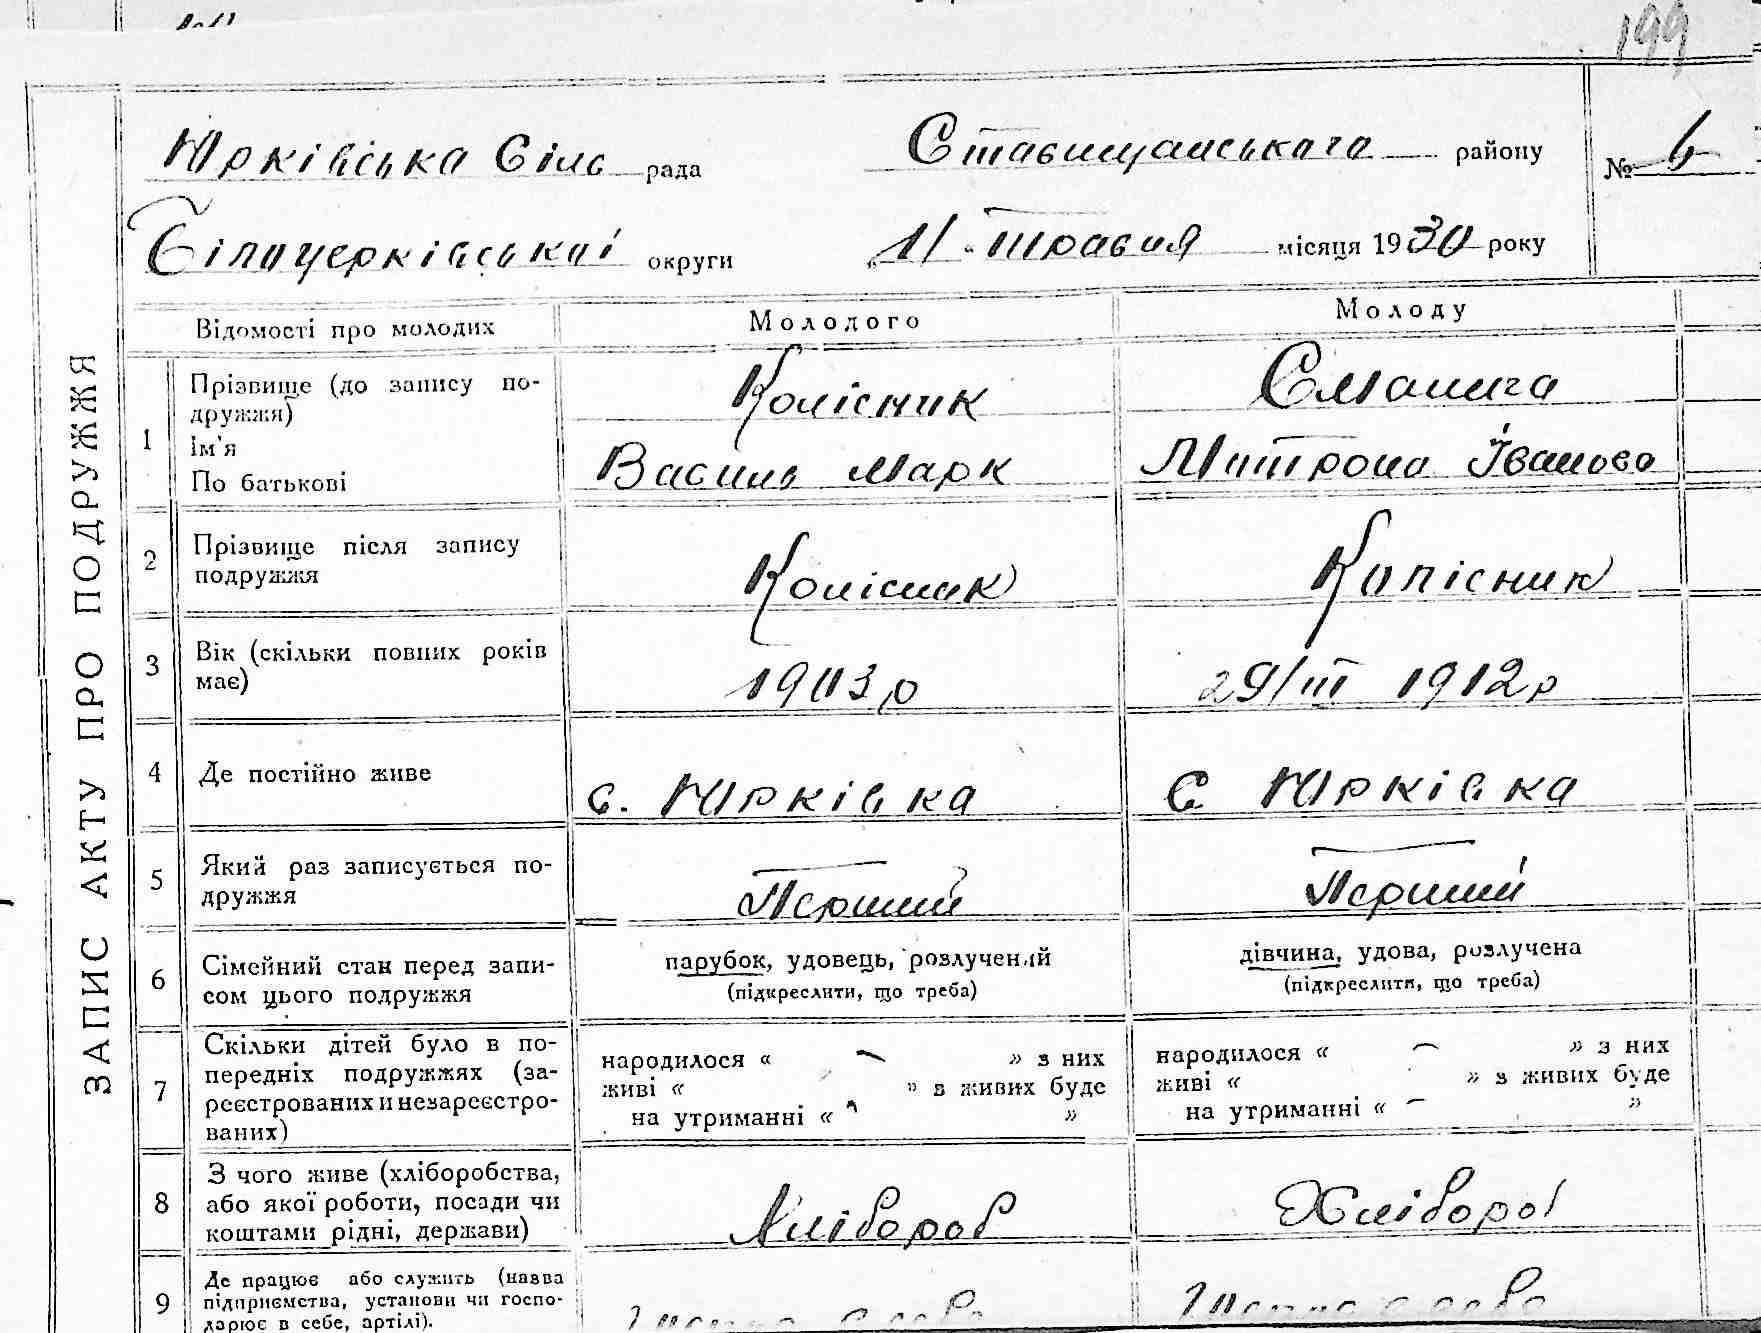 199
Юрківська Сільрада
Ставищанського району
№ 6
Білоцерківської округи
"11" травня місяця 1930 року
ЗАПИС АКТУ ПРО ПОДРУЖЖЯ
Відомості про молодих
Молодого
Молоду
1
Прізвище (до запису по-
дружжя)
Ім'я
По батькові
Колісник
Василь Марк
Смалига
Митрона Іваново
2
Прізвище після запису
подружжя
Колісник
Колісник
3
Вік (скільки повних років
має)
1903 р
29/III 1912 р
4
Де постійно живе
с. Юрківка
с Юрківка
5
Який раз записується по-
дружжя
Перший
Перший
6
Сімейний стан перед запи-
сом цього подружжя
парубок, удовець, розлучений
(підкреслити, що треба)
дівчина, удова, розлучена
(підкреслити, що треба)
7
Скільки дітей було в по-
передніх подружжях (за-
реєстрованих и незареєстро-
ваних)
народилося « — » з них
живі « » з живих буде
на утриманні « »
народилося « — » з них
живі « » з живих буде
на утриманні « — »
8
З чого живе (хліборобства,
або якої роботи, посади чи
коштами рідні, держави)
Хлібороб
Хлібороб
9
Де працює або служить (назва
підприємства, установи чи госпо-
дарює в себе, артілі).